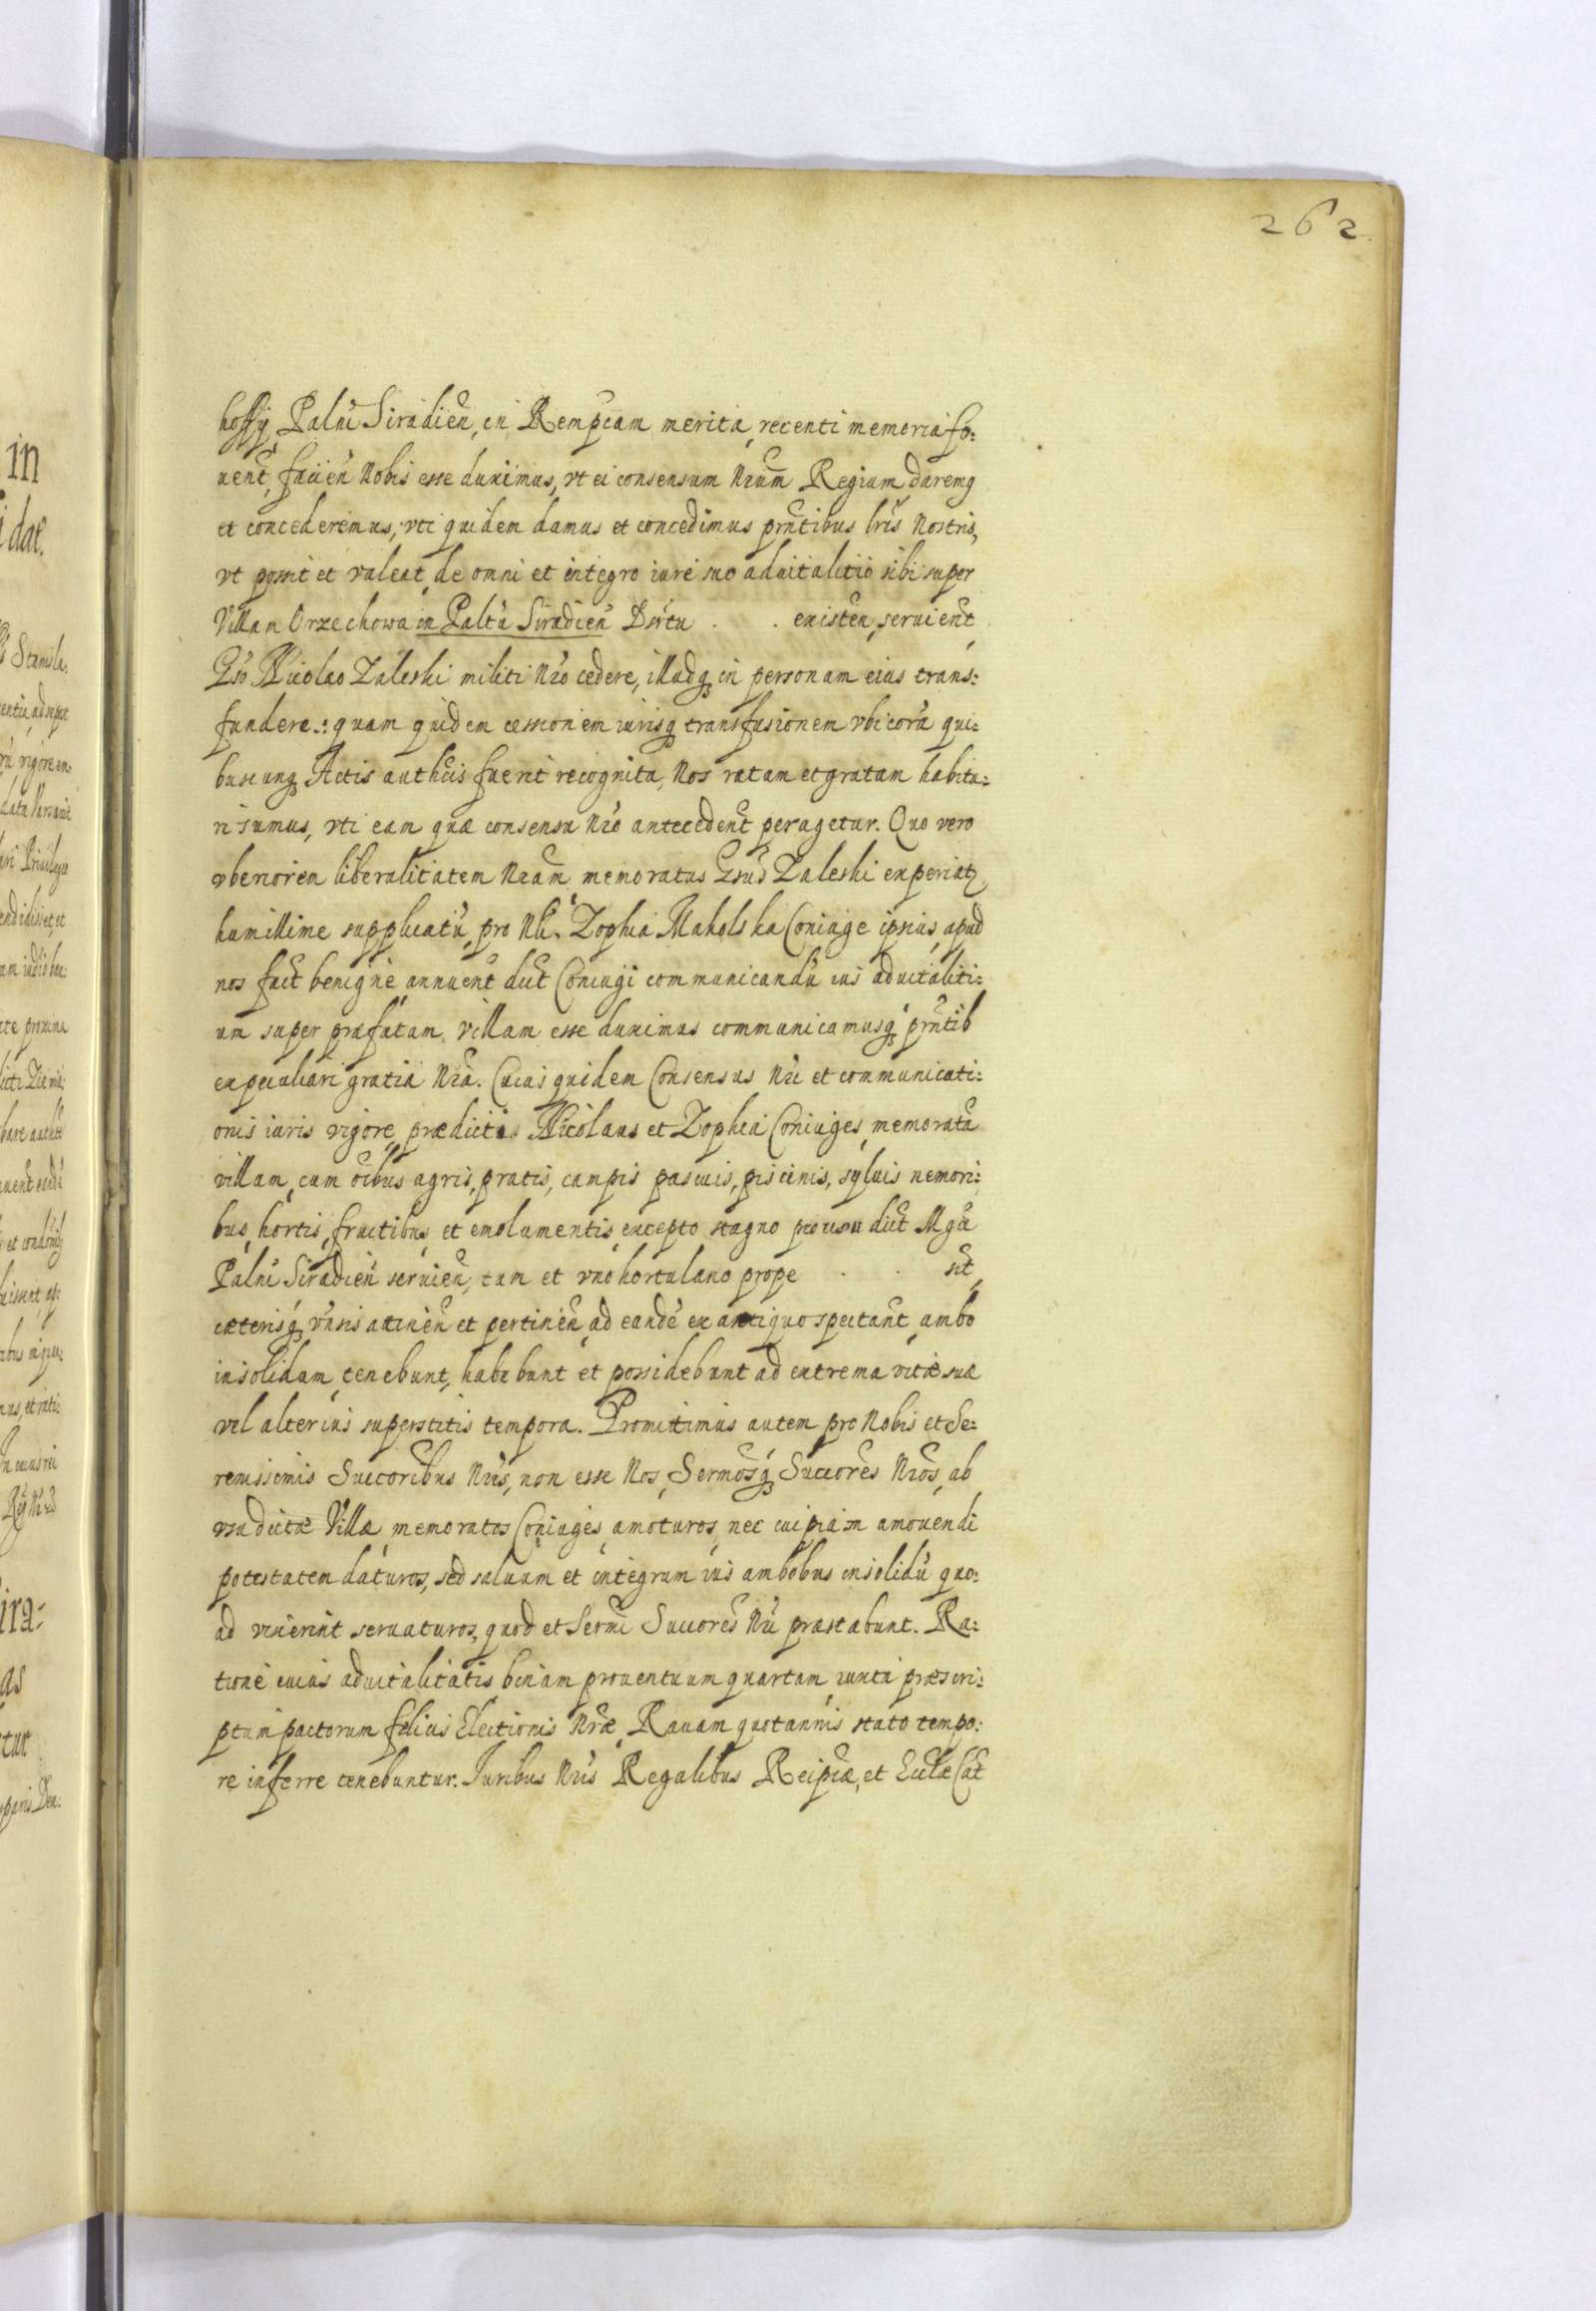 262
hoffy Palnī Siradien̄, in Rempcam merita, recenti memoria fo:
uenť, facien̄ Nobis esse duximus, vt ei consensum Nrūm Regium daremq
et concederemus, vti quidem damus et concedimus prn̄tibus lrīs Nostris,
vt possit et valeat, de omni et integro iure suo aduitalitio sibi super
Villam Orzechowa in Paltū Siradien̄ Dsrtu . . existen̄, seruienť
Gso Nicolao Zaleski militi Nrō cedere, illudq in personam eius trans:
fundere.: quam quidem cessionem iurisq transfusionem vbi corā qui:
buscunq Actis authcīs fuerit recognita, Nos ratam et gratam habitu:
ri sumus, vti eam quæ consensu Nrō antecedenť peragetur. Quo vero
vberiorem liberalitatem Nrām memoratus Gsūs Zaleski experiatr
humillime supplicatū, pro Nli. Zophia Makolska Coniuge ipsius, apud
nos facť benigne annuenť dicť Coniugi communicandū ius aduitaliti:
um super præfatam villam esse duximus communicamusq prn̄tib
ex peculiari gratia Nrā. Cuius quidem Consensus Nrī et communicati:
onis iuris vigore, prædicti Nicolaus et Zophia Coniuges, memoratā
villam, cum oībus agris, pratis, campis pascuis, piscinis, syluis nemori:
bus, hortis, fructibus et emolumentis, excepto stagno pro usu dicť Mgcī
Palnī Siradien̄ seruien̄, tam et vno hortulano prope . . siť
cæterisq vn̄sis attinen̄ et pertinen̄ ad eandē ex antiquo spectanť, ambo
insolidum, tenebunt, habebunt et possidebunt ad extrema vitæ suæ
vel alterius superstitis tempora. Promittimus autem pro Nobis et Se:
renissimis Succoribus Nrīs, non esse Nos, Sermosq Succores Nrōs, ab
vsu dictæ Villæ memoratos Coniuges, amoturos, nec cuipiam amouendi
potestatem daturos, sed saluum et integrum ius ambobus insolidū quo:
ad vixerint seruaturos, quod et Sermī Succores Nrī præstabunt. Ra:
tione cuius aduitalitatis binam prouentuum quartam, iuxta præscri:
ptum pactorum felicis Electionis Nræ, Rauam quotannis stato tempo:
re inferre tenebuntur. Iuribus Nrīs Regalibus Reipcæ, et Ecclæ Cať